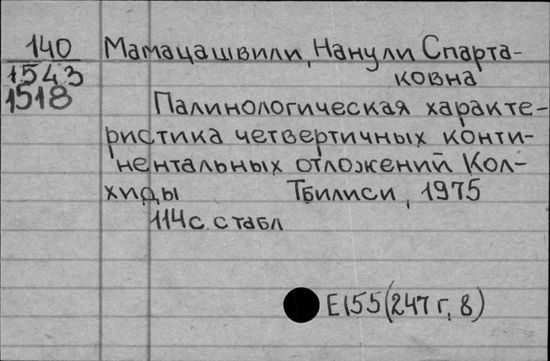 140 Мамацашвили, Нанули Спарта-
1543 ковна
1518 Палинологическая характе-
ристика четвертичных конти-
нентальных отложений Кол-
хиды Тбилиси, 1975
114с. с табл
Е155(247г, 8)